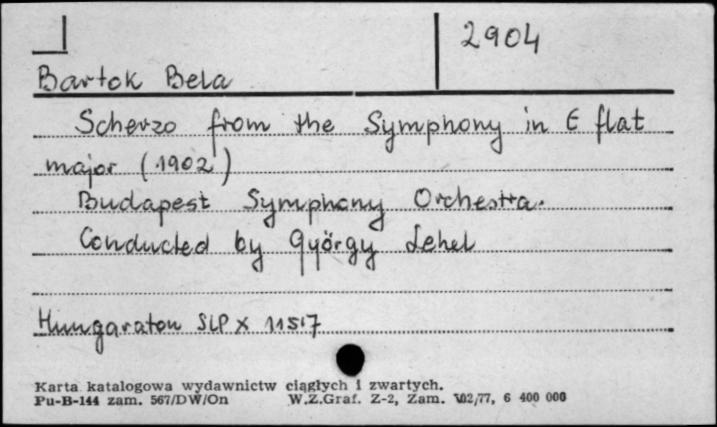 2904
Bartok Bela
Scherzo from the Symphony in E flat
major (1902)
Budapest Symphony Orchestra.
Conducted by György Lehel
Hungaraton SLPX 11517
Karta katalogowa wydawnictw ciągłych i zwartych.
Pu-B-144 zam. 567/DW/On W.Z.Graf. Z-2, Zam. 102/77, 6 400 000